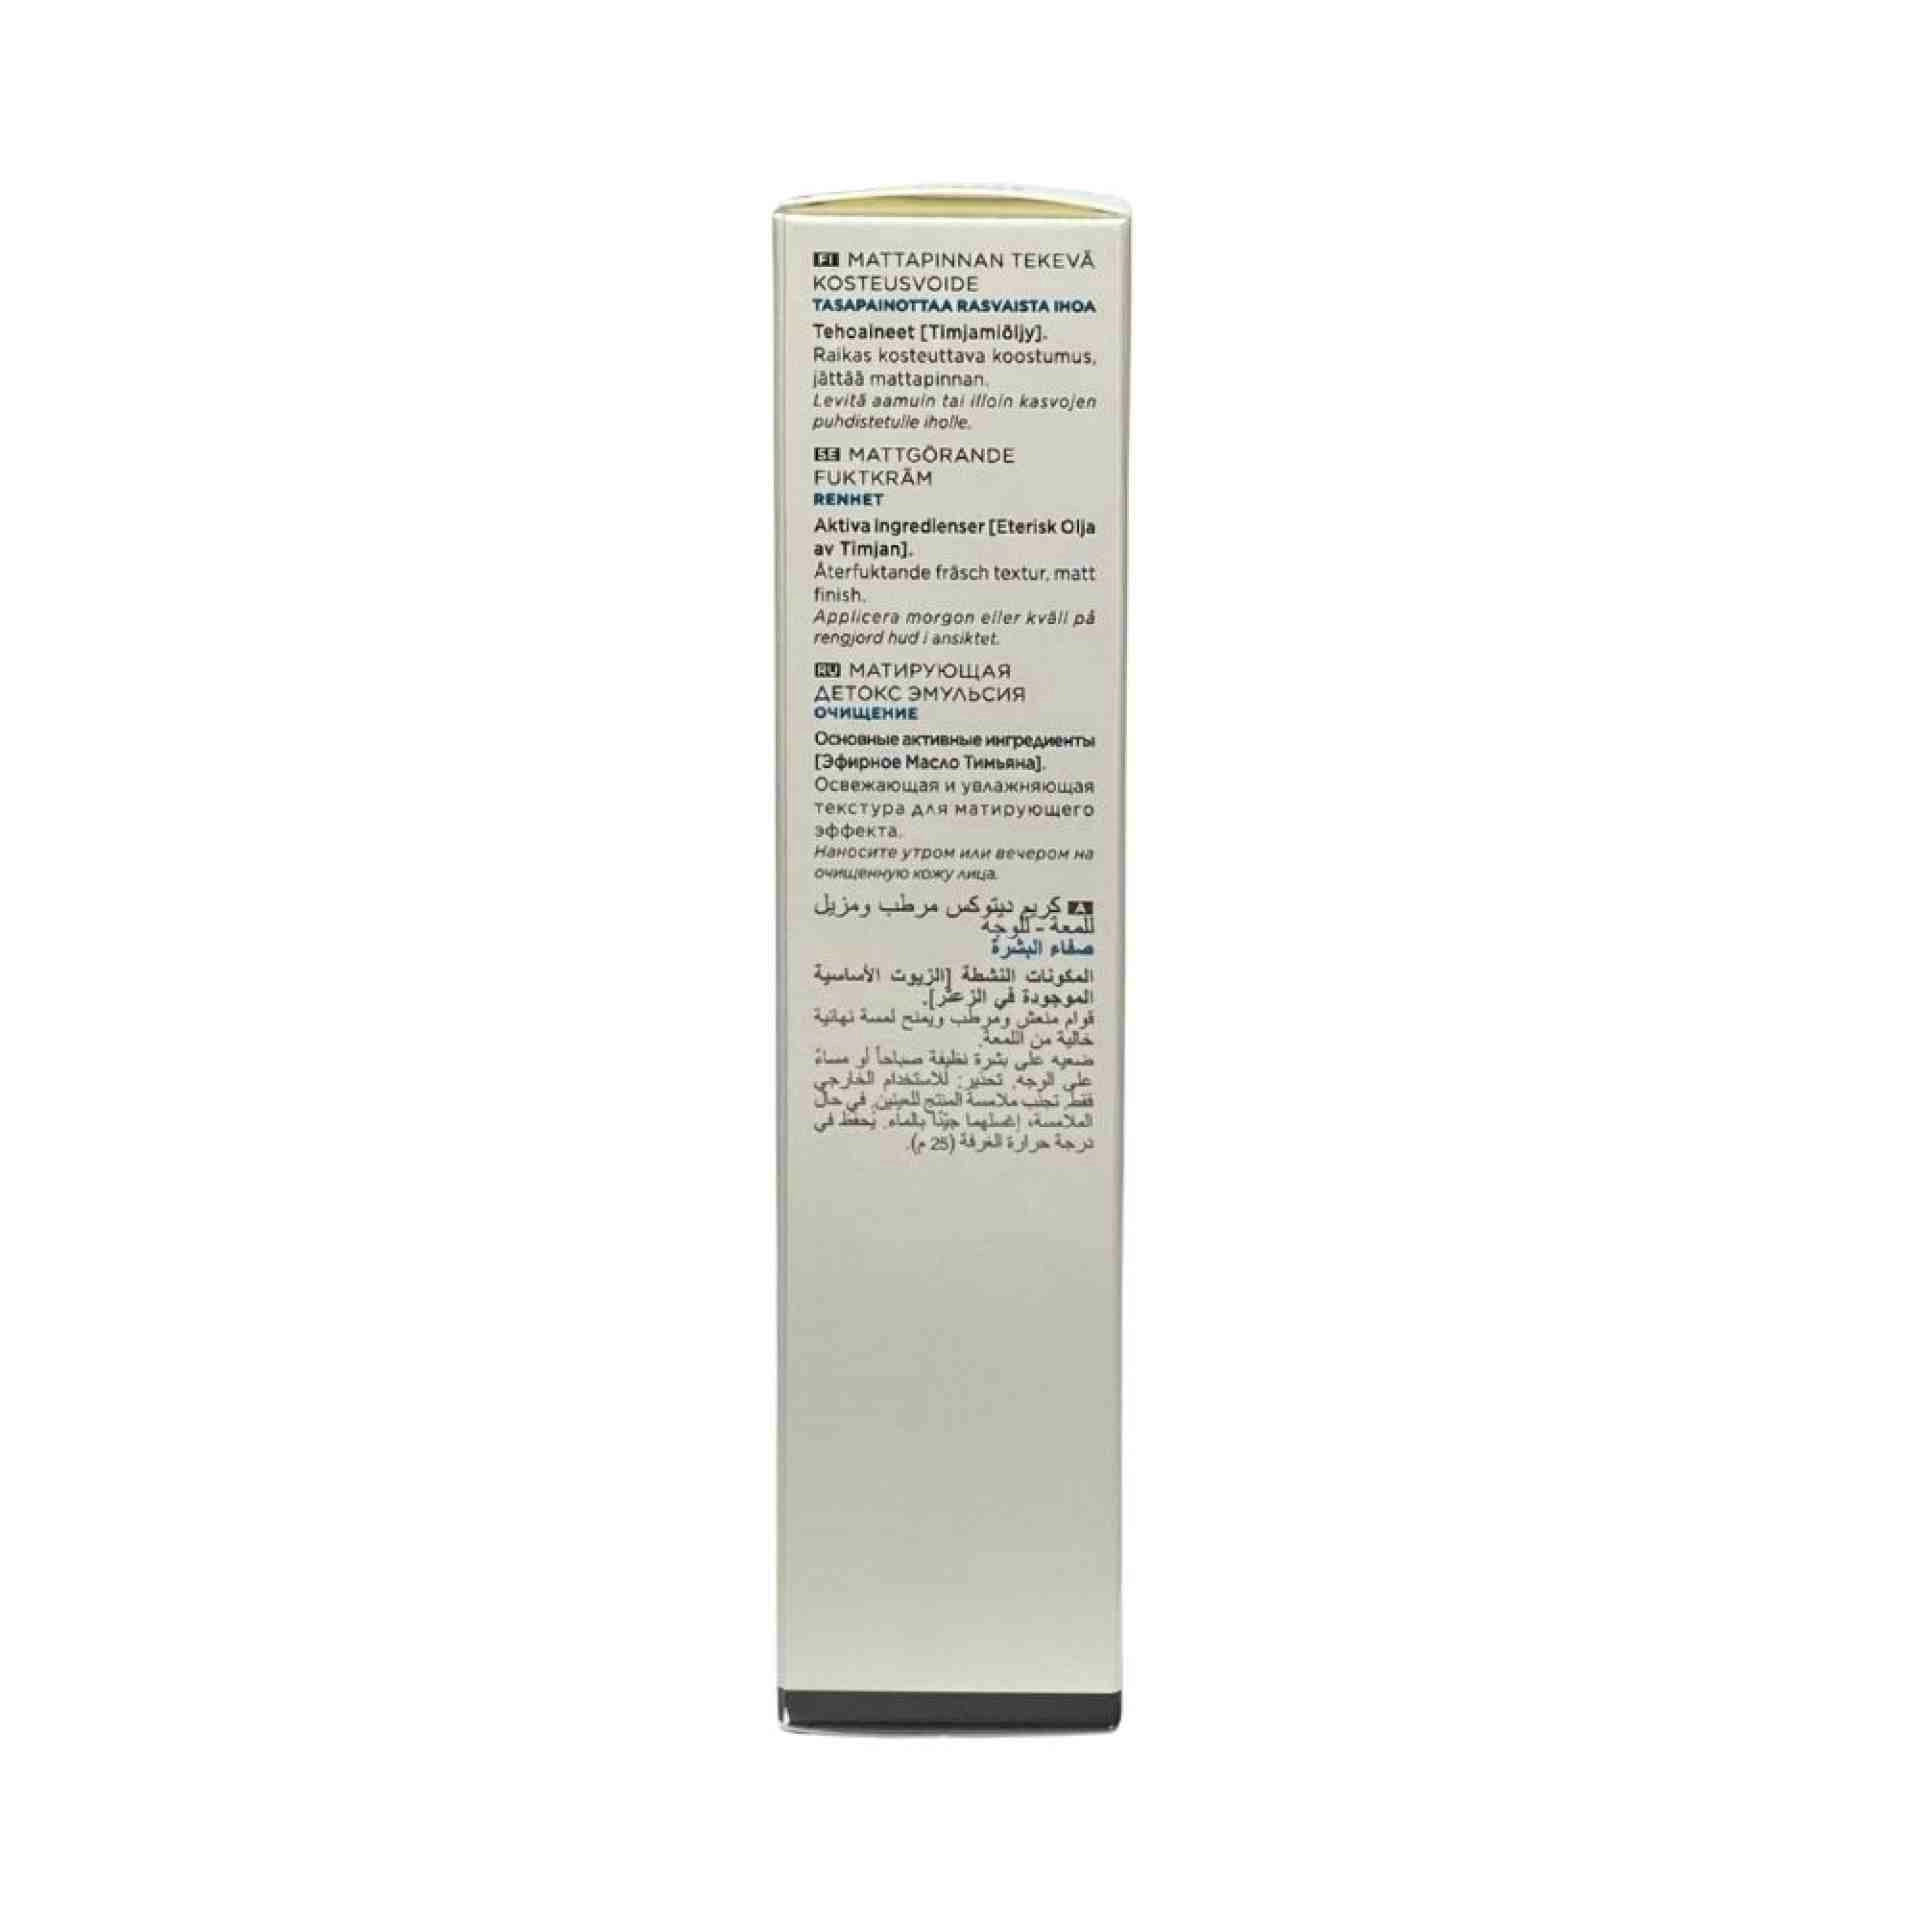 FI MATTAPINNAN TEKEVÄ
KOSTEUSVOIDE
TASAPAINOTTAA RASVAISTA IHOA
Tehoaineet [Timjamiöljy].
Raikas kosteuttava koostumus,
jättää mattapinnan.
Levitä aamuin tai illoin kasvojen
puhdistetulle iholle.
SE MATTGÖRANDE
FUKTKRÄM
RENHET
Aktiva Ingredienser [Eterisk Olja
av Timjan].
Återfuktande fräsch textur, matt
finish.
Applicera morgon eller kväll på
rengjord hud i ansiktet.
RU МАТИРУЮЩАЯ
ДЕТОКС ЭМУЛЬСИЯ
ОЧИЩЕНИЕ
Основные активные ингредиенты
[Эфирное Масло Тимьяна].
Освежающая и увлажняющая
текстура для матирующего
эффекта.
Наносите утром или вечером на
очищенную кожу лица.
A كريم ديتوكس مرطب ومزيل
للمعة - للوجه
صفاء البشرة
المكونات النشطة [الزيوت الأساسية
الموجودة في الزعتر].
قوام منعش ومرطب ويمنح لمسة نهائية
خالية من اللمعة.
ضعيه على بشرة نظيفة صباحاً أو مساءً
على الوجه. تحذير: للاستخدام الخارجي
فقط. تجنب ملامسة المنتج للعينين. في حال
الملامسة، إغسلهما جيّداً بالماء. يُحفظ في
درجة حرارة الغرفة (25 م).